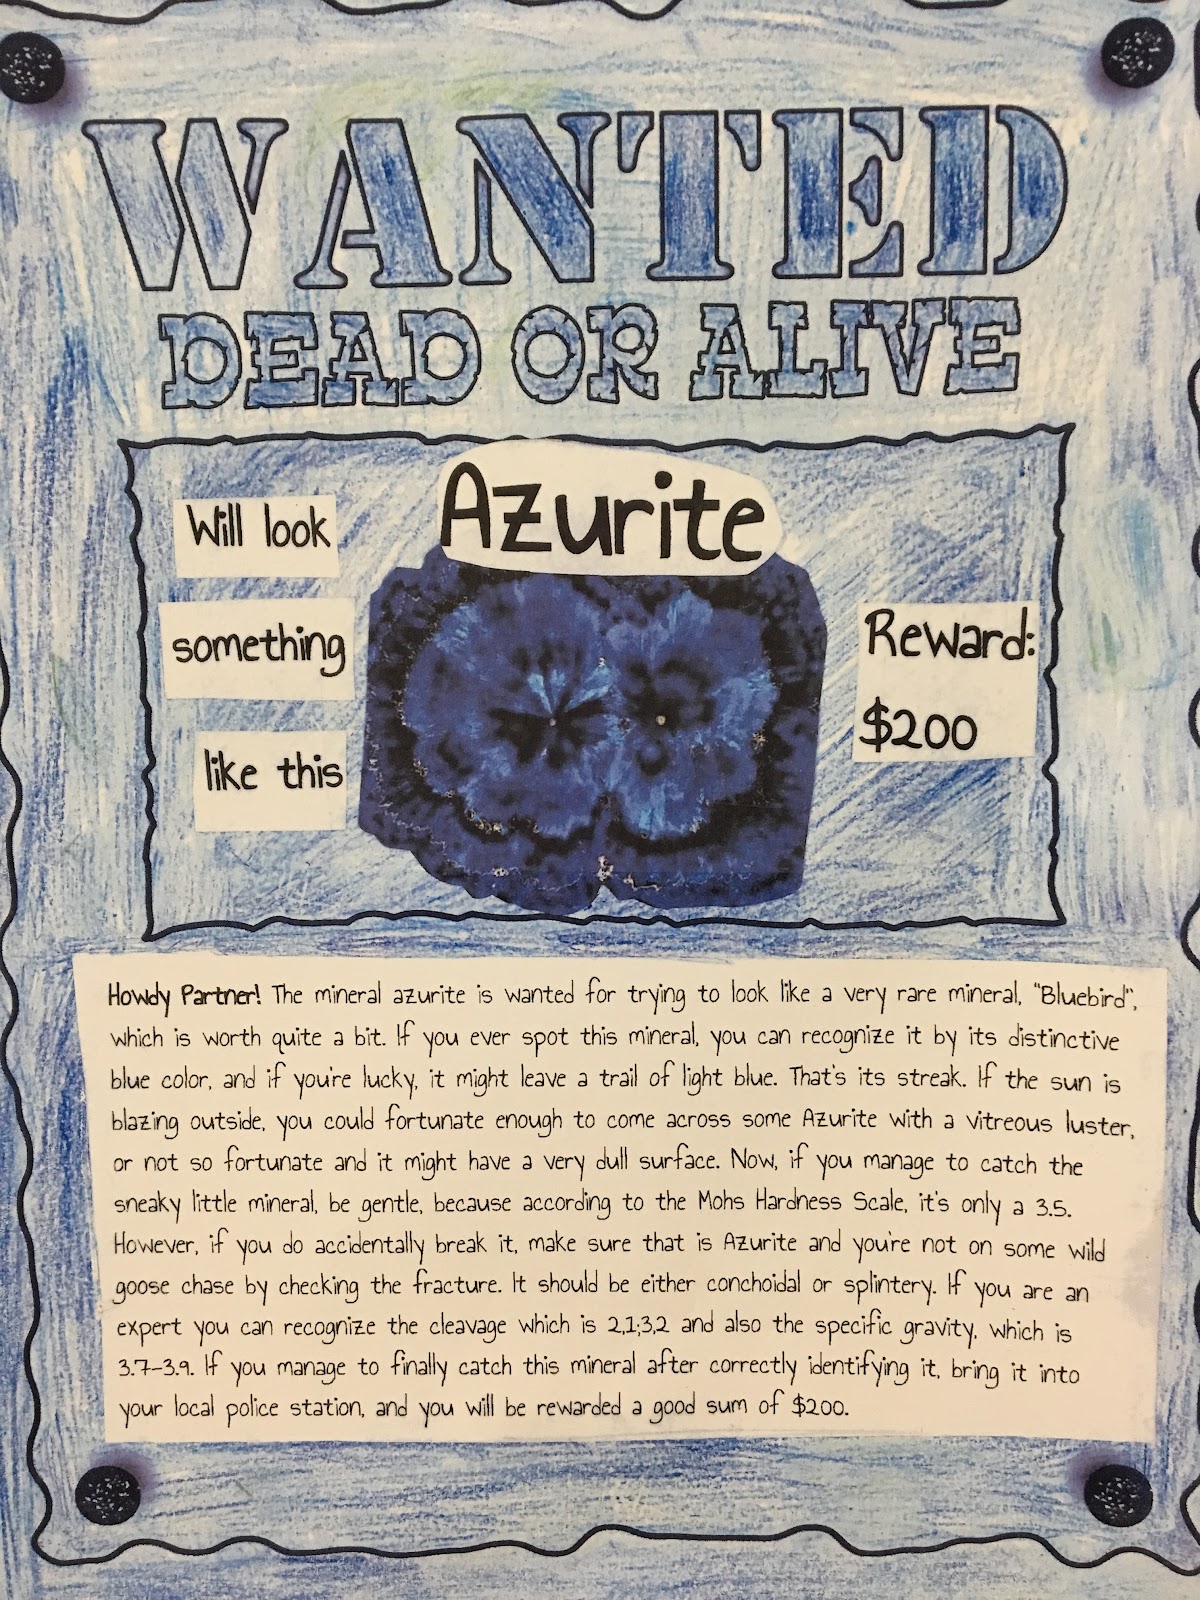 WANTED
DEAD OR ALIVE
Azurite
Will look
something
like this
Reward:
$200
Howdy Partner! The mineral azurite is wanted for trying to look like a very rare mineral, "Bluebird",
which is worth quite a bit. If you ever spot this mineral, you can recognize it by its distinctive
blue color, and if you're lucky, it might leave a trail of light blue. That's its streak. If the sun is
blazing outside, you could fortunate enough to come across some Azurite with a vitreous luster,
or not so fortunate and it might have a very dull surface. Now, if you manage to catch the
sneaky little mineral, be gentle, because according to the Mohs Hardness Scale, it's only a 3.5.
However, if you do accidentally break it, make sure that is Azurite and you're not on some wild
goose chase by checking the fracture. It should be either conchoidal or splintery. If you are an
expert you can recognize the cleavage which is 2,1;3,2 and also the specific gravity, which is
3.7-3.9. If you manage to finally catch this mineral after correctly identifying it, bring it into
your local police station, and you will be rewarded a good sum of $200.